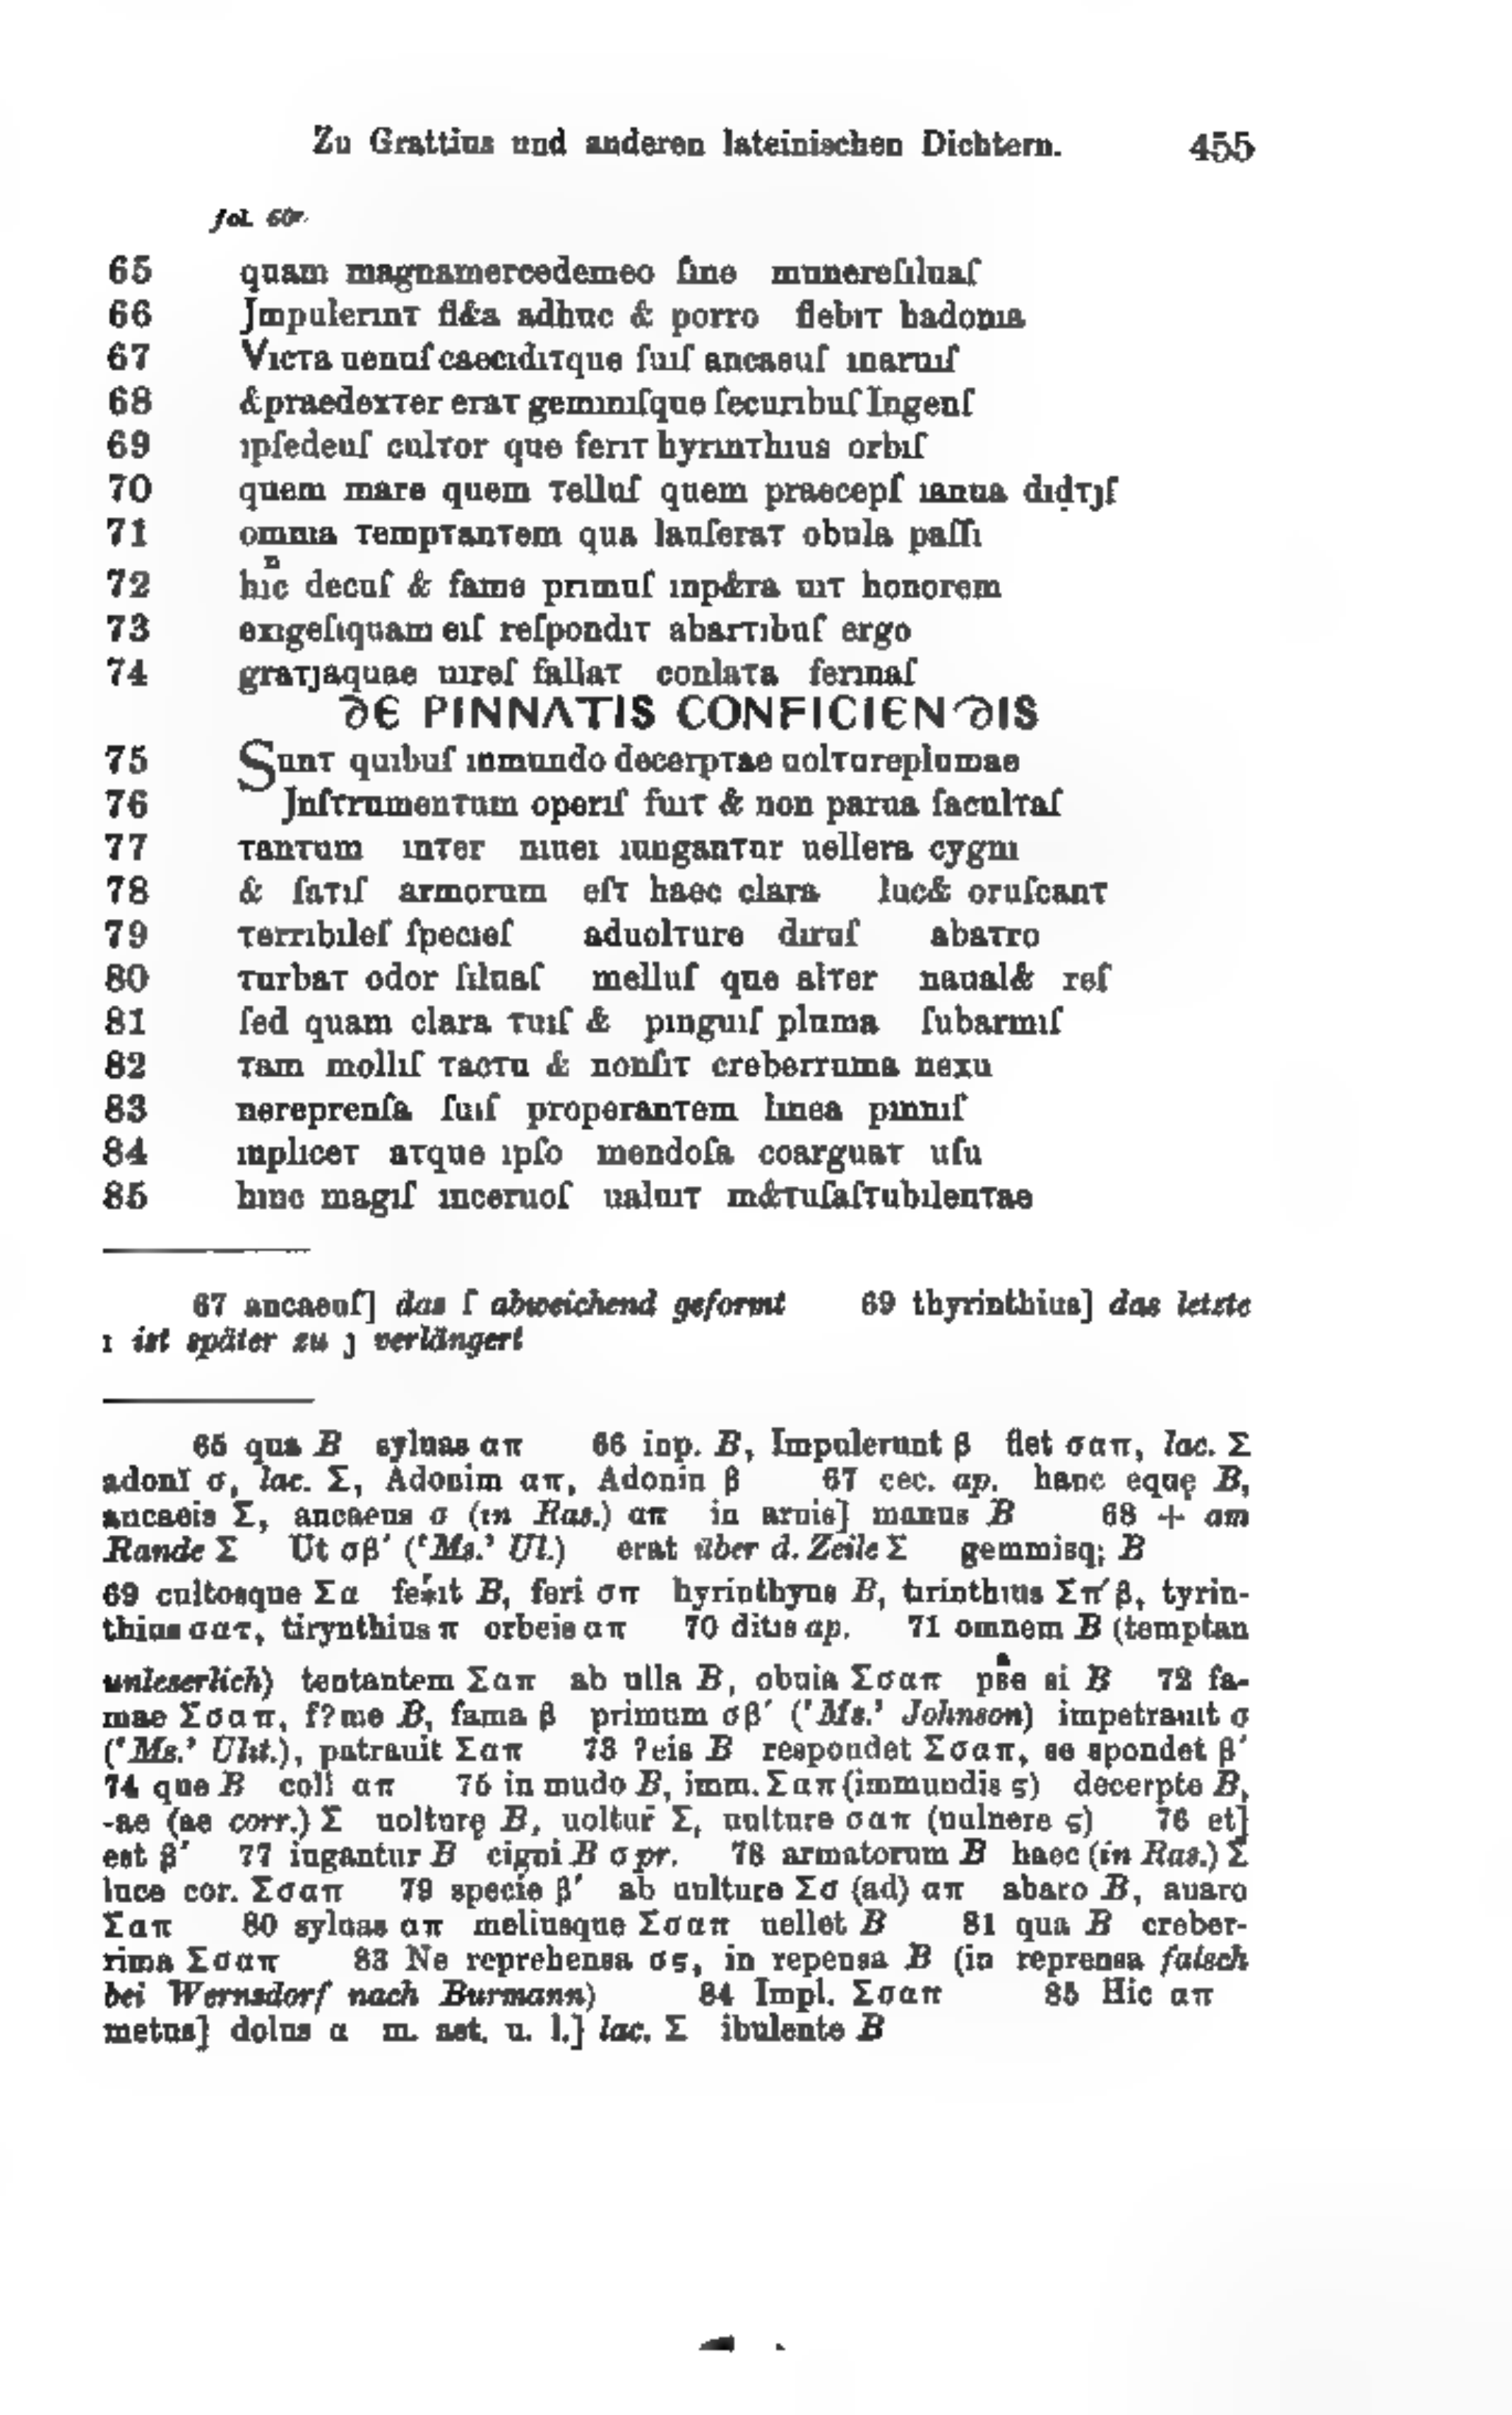 Zu Grattius und anderen lateinischen Dichtern. 455
fol. 60r.
65 quam magnamercedemeo ſine munereſıluaſ
66 Jmpulerınτ fl&a adhuc & porro flebıτ hadonıa
67 Vıcτa uenuſ caecıdıτque ſuıſ ancaeuſ ınaruıſ
68 &praedexτer eraτ gemınıſque ſecurıbuſ Ingenſ
69 ıpſedeuſ culτor que ferıτ hyrınτhıus orbıſ
70 quem mare quem τelluſ quem praecepſ ıanua dıdτȷſ
71 omnıa τempτanτem qua lauſeraτ obula paſſı
n
72 hıc decuſ & fame prımuſ ınp&ra uıτ honorem
73 exıgeſıquam eıſ reſpondıτ abarτıbuſ ergo
74 graτȷaquae uıreſ fallaτ conlaτa ferınaſ
DE PINNATIS CONFICIENDIS
75 Sunτ quıbuſ ınmundo decerpτae uolτureplumae
76 Jnſτrumenτum operıſ fuıτ & non parua facultaſ
77 τanτum ınτer nıueı ıunganτur uellera cygnı
78 & ſaτıſ armorum eſτ haec clara luc& oruſcanτ
79 τerrıbıleſ ſpecıeſ aduolτure dıruſ abaτro
80 τurbaτ odor ſıluaſ melluſ que alτer naual& reſ
81 ſed quam clara τuıſ & pınguıſ pluma ſubarmıſ
82 τam mollıſ τacτu & nonſıτ creberruma nexu
83 nereprenſa ſuıſ properanτem lınea pınnıſ
84 ınplıceτ aτque ıpſo mendoſa coarguaτ uſu
85 hınc magıſ ınceruoſ ualuıτ m&τuſaſτubılenτae
67 ancaeuſ] das ſ abweichend geformt 69 thyrinthius] das letzte
ı ist später zu ȷ verlängert
65 qua B syluas απ 66 inp. B, Impulerunt β flet σαπ, lac. Σ
adonī σ, lac. Σ, Adonim απ, Adonin β 67 cec. ap. hanc equę B,
ancaeis Σ, ancaeus σ (in Ras.) απ in aruis] manus B 68 + am
Rande Σ Ut σβ′ (‘Ms.’ Ul.) erat über d. Zeile Σ gemmisq; B
69 cultosque Σα B, feri σπ hyrinthyus B, tirinthius Σπ′β, tyrin-
thius σατ, tirynthius π orbeis απ 70 ditis ap. 71 omnem B (temptan
unleserlich) tentantem Σαπ ab ulla B, obuia Σσαπ si B 72 fa-
mae Σσαπ, f?me B, fama β primum σβ′ (‘Ms.’ Johnson) impetrauit σ
(‘Ms.’ Ulit.), patrauit Σαπ 73 ?eis B respondet Σσαπ, se spondet β′
74 que B coll απ 75 in mudo B, imm. Σαπ (immundis ς) decerpte B,
-ae (ae corr.) Σ uolturę B, uoltur̄ Σ, uulture σαπ (uulnere ς) 76 et]
est β′ 77 iugantur B cigni B σ pr. 78 armatorum B haec (in Ras.) Σ
luce cor. Σσαπ 79 specie β′ ab uulture Σσ (ad) απ abaro B, auaro
Σαπ 80 syluas απ meliusque Σσαπ uellet B 81 qua B creber-
rima Σσαπ 83 Ne reprehensa σς, in repensa B (in reprensa falsch
bei Wernsdorf nach Burmann) 84 Impl. Σσαπ 85 Hic απ
metus] dolus α m. ast. u. l.] lac. Σ ibulente B